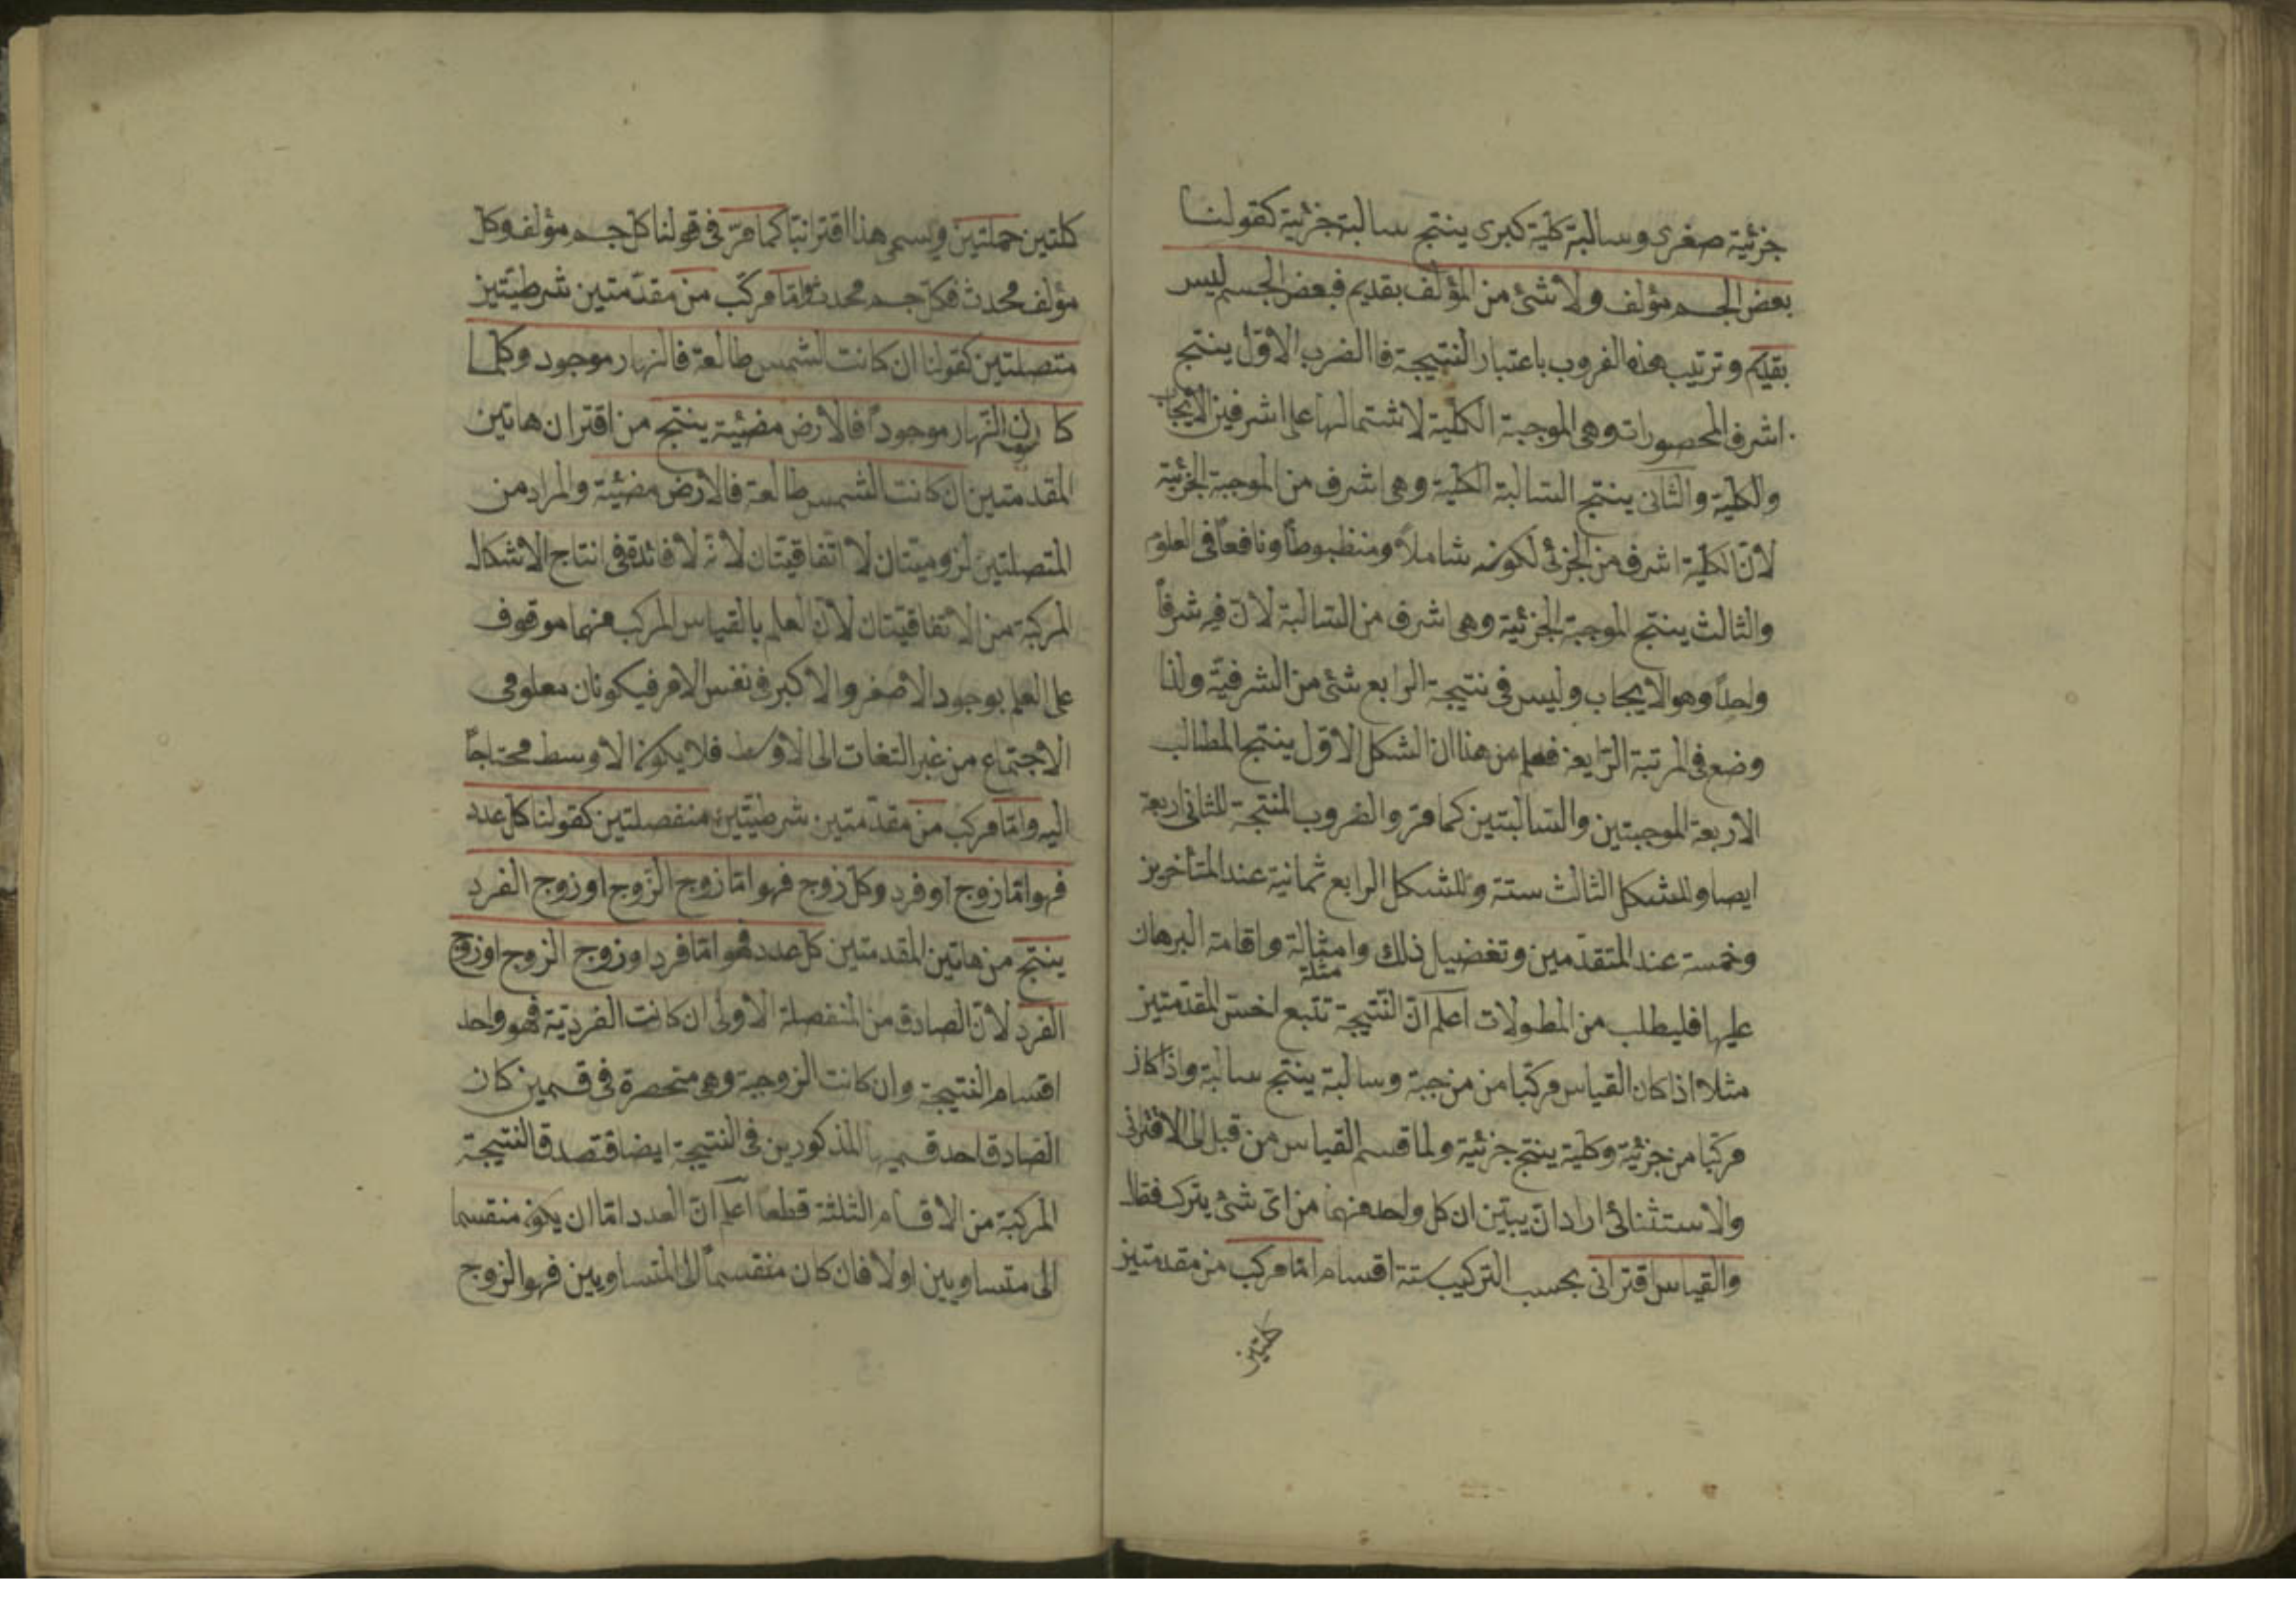 جزئية صغرى وسالبة كلية كبرى ينتج سالبة جزئية كقولنا
بعض الجسم مؤلف ولا شئ من المؤلف بقديم فبعض الجسم ليس
بقديم وترتيب هذه الضروب باعتبار النتيجة فاالضرب الاوّل ينتج
اشرف المحصورات وهى الموجبة الكلية لاشتمالها على اشرفين الايجاب
والكلية والثانى ينتج السالبة الكلية وهى اشرف من الموجبة الجزئية
لانّ الكلية اشرف من الجزئى لكونه شاملاً ومنظبوطاً ونافعاً فى العلوم
والثالث ينتج الموجبة الجزئية وهى اشرف من السالبة لانّ فيه شرفاً
واحداً وهو الايجاب وليس فى نتيجة الرابع شئ من الشرفية ولذا
وضع فى المرتبة الرّابعة فعلم من هذا ان الشكل الاوّل ينتج المطالب
الاربعة الموجبتين والسالبتين كما مرّ والضروب المنتجة للثانى اربعة
ايضا وللشكل الثالث ستة وللشكل الرابع ثمانية عند المتأخرين
وخمسة عند المتقدّمين وتفضيل ذلك وامثالة واقامة البرهان
مثلة
عليها فليطلب من المطولات اعلم انّ النّتيجة تتبع اخسّ المقدّمتين
مثلا اذا كان القياس مركّبا من مزجبة وسالبة ينتج سالبة واذا كان
مركّبا من جزئية وكلية ينتج جزئية ولما قسم القياس من قبل الى الاقترانى
والاستثنائى اراد ان يبيّن ان كل واحد منهما من اىّ شئ يترك فقال
والقياس اقترانى بحسب التركيب ستة اقسام امّا مركب من مقدمتين
كلتين
كلتين حملتين ويسمى هذا اقترانيّا كما مرّ فى قولنا كلّ جسم مؤلف وكل
مؤلف محدث فكلّ جسم محدث وامّا مركّب من مقدّمتين شرطيّتين
متصلتين كقولنا ان كانت الشمس طالعة فالنهار موجود وكلما
كان النّهار موجوداً فالأرض مضئية ينتج من اقتران هاتين
المقدمتين ان كانت الشمس طالعة فالارض مضئية والمراد من
المتصلتين لزوميّتان لا اتفاقيّتان لانّه لا فائدة فى انتاج الاشكال
المركبة من الاتفاقيّتان لانّ العلم بالقياس المركب منهما موقوف
على العلم بوجود الاصغر والاكبر فى نفس الامر فيكونان معلومى
الاجتماع من غير التغات الى الاوسط فلا يكون الاوسط محتاجاً
اليه وامّا مركب من مقدّمتين شرطيّتين منفصلتين كقولنا كل عدد
فهو امّا زوج او فرد وكل زوج فهو امّا زوج الزّوج او زوج الفرد
ينتج من هاتين المقدمتين كل عدد فهو امّا فرد او زوج الزوج او زوج
الفرد لانّ الصادق من المنفصلة الاولى ان كانت الفرديّة فهو واحد
اقسام النتيجة وان كانت الزوجية وهى منحصرة فى قسمين كان
الصادق احد قسميها المذكورين فى النتيجة ايضا فتصدق النتيجة
المركبة من الاقسام الثلثة قطعا اعلم انّ العدد امّا ان يكون منقسما
الى متساويين اولا فان كان منقسماً الى المتساويين فهو الزوج